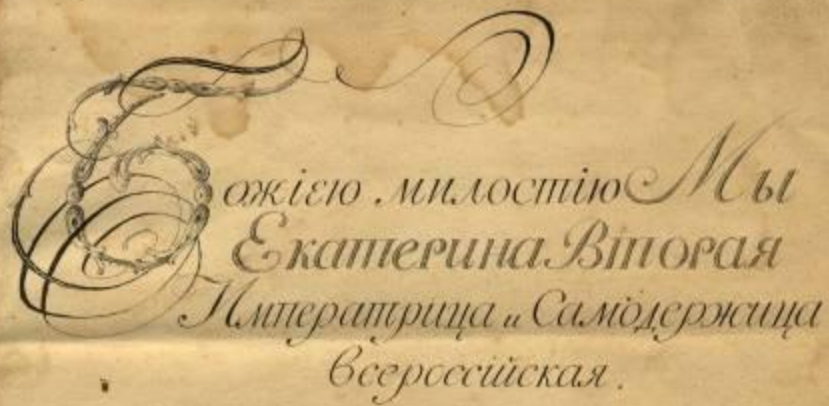 Божіею милостію Мы
Екатерина Вторая
Императрица и Самодержица
Всероссійская.